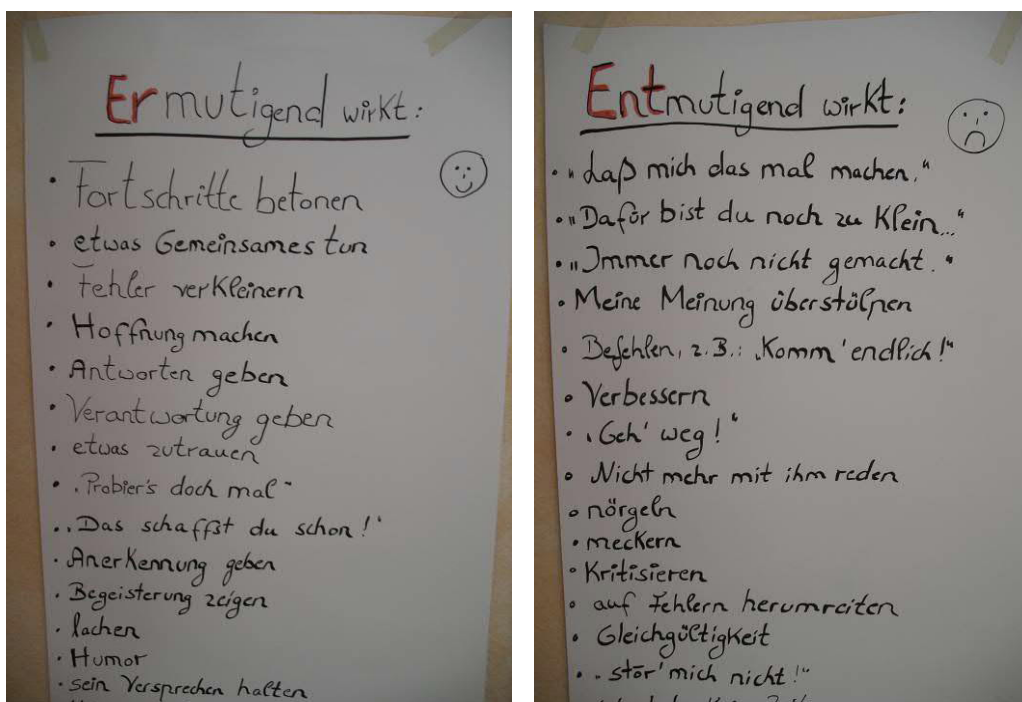 Ermutigend wirkt:
• Fortschritte betonen
• etwas Gemeinsames tun
• Fehler verkleinern
• Hoffnung machen
• Antworten geben
• Verantwortung geben
• etwas zutrauen
• „Probier's doch mal“
• „Das schaffst du schon!“
• Anerkennung geben
• Begeisterung zeigen
• lachen
• Humor
• sein Versprechen halten
Entmutigend wirkt:
• „Laß mich das mal machen.“
• „Dafür bist du noch zu klein...“
• „Immer noch nicht gemacht.“
• Meine Meinung überstülpen
• Befehlen, z.B.: „Komm' endlich!“
• Verbessern
• „Geh' weg!“
• Nicht mehr mit ihm reden
• nörgeln
• meckern
• Kritisieren
• auf Fehlern herumreiten
• Gleichgültigkeit
• „stör' mich nicht!“